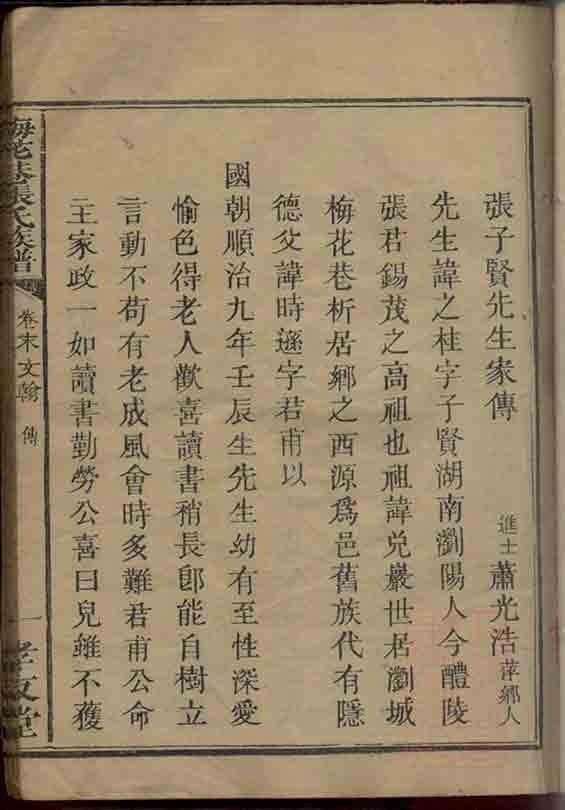 張子賢先生家傳 進士蕭光浩萍鄉人
先生諱之桂字子賢湖南瀏陽人今醴陵
張君錫茂之高祖也祖諱兌巖世居瀏城
梅花巷析居鄉之西源爲邑舊族代有隱
德父諱時遜字君甫以
國朝順治九年壬辰生先生幼有至性深愛
愉色得老人歡喜讀書稍長卽能自樹立
言動不苟有老成風會時多難君甫公命
主家政一如讀書勤勞公喜曰兒雖不獲
梅花巷張氏族譜 卷末文翰 傳 一 孝友堂